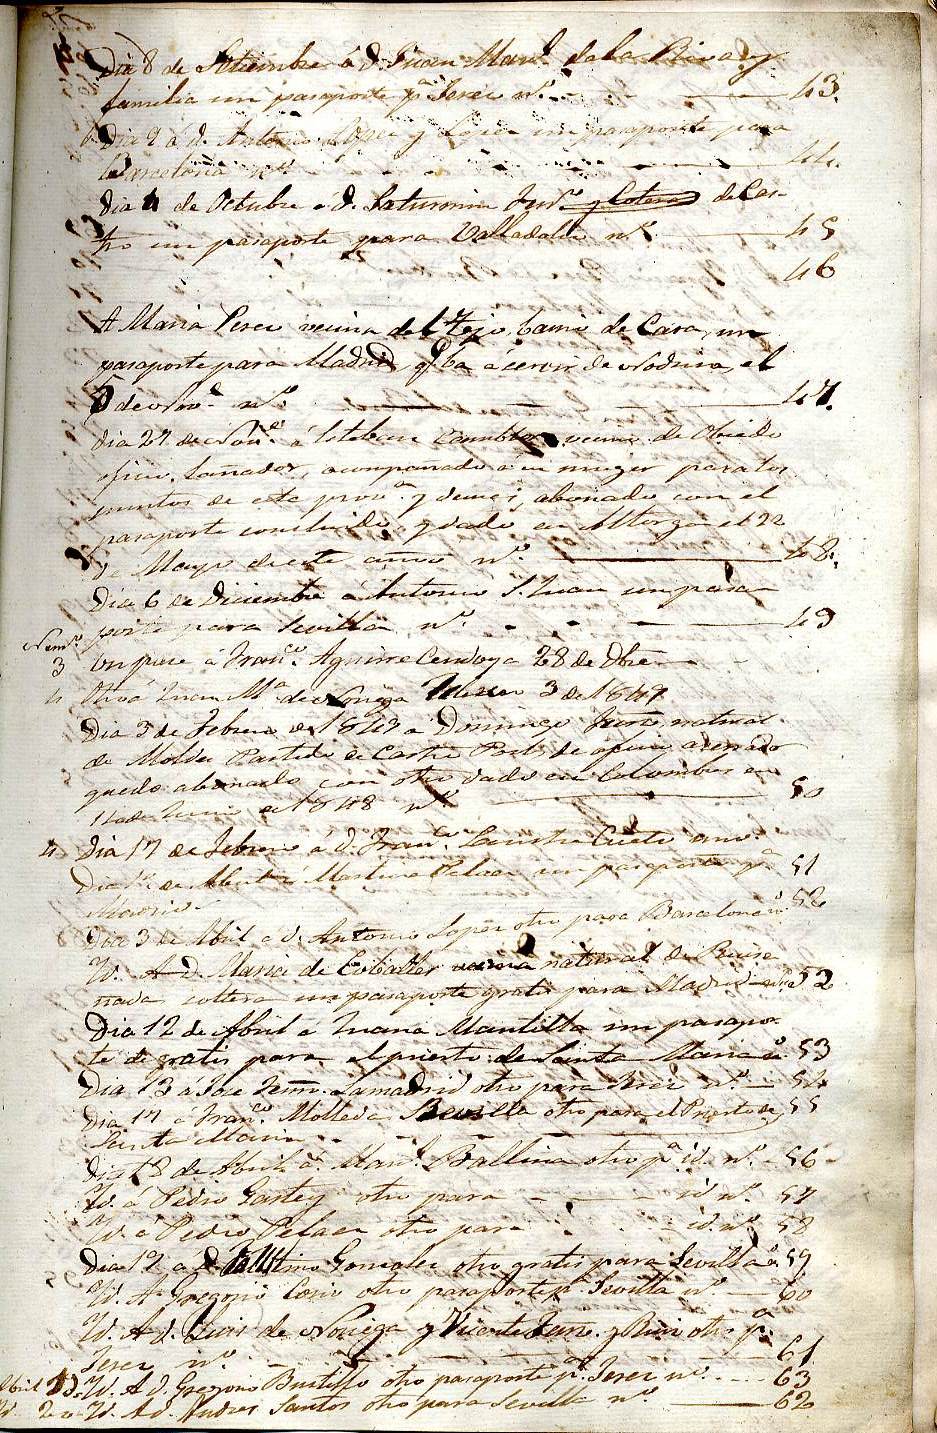 Dia 8 de Setiembre á d. Juan Man.l de la Riva y
familia un pasaporte p.a Jerez n.o 43.
Dia 9 á d. Antonio López y López un pasaporte para
Barcelona n.o 44.
Dia 4 de Octubre á d. Saturnino y Cotera de Cas-
tro un pasaporte para Valladolid n.o 45
46
A Maria Perez vecina del Tejo, barrio de Cara, un
pasaporte para Madrid, q.e ba á servir de Nodriza, el
5 de Nov.e n.o 47.
Dia 27 de Nov.e á Esteban vecino de Obiedo
oficio Lañador, acompañado á su muger para los
puntos de esta prov.a y demas, abonado con el
pasaporte concluido, y dado en Astorga el 22
de Mayo de este año n.o 48.
Dia 6 de Diciembre á Antonio S. Juan un pasa-
porte para Sevilla n.o 49
Num.o
3 Un pase á Fran.co Aguirre Cendoya 28 de Dbre
4 Otro á Juan M.a de Noriega Enero 3 de 1849
Dia 3 de Febrero de 1849 a Domingo natural
de Partido de Castro Pol, de oficio
quedo abonado con otro dado en Colombres en
11 de Junio de 1848 n.o 50
4 Dia 17 de Febrero á d. Fran.co Cueto
Dia 1.o de Abril á Martina Pelaez un pasaporte p.a 51
Madrid. 52
Dia 3 de Abril a d. Antonio López otro para Barcelona n.o
Id. A D. Maria de Ceballos natural de Ruise-
ñada soltera un pasaporte gratis para Madrid n.o 52
Dia 12 de Abril á Juana Mantilla un pasapor-
te de gratis para el puerto de Santa Maria n.o 53
Dia 13 á José Lamadrid otro para Jerez n.o 54
Dia 17 á Fran.co Molleda otro para el Puerto de 55
Santa Maria
Dia 18 de Abril á Man.l Ballina otro p.a id. n.o 56
Id. á Pedro otro para id. n.o 57
Id. á Pedro Pelaez otro para id. n.o 58
Dia 19 á D. Faustino Gonzalez otro gratis para Sevilla n.o 59
Id. A Gregorio Cosio otro pasaporte p.a Sevilla n.o 60
Id. A d. Luis de Noriega y Vicente y Ruiz otro p.a
Jerez n.o 61
Abril Id. A d. Gregorio Bustillo otro pasaporte p.a Jerez n.o 63
Id. 20 Id. A d. Andres Santos otro para Sevilla n.o 62